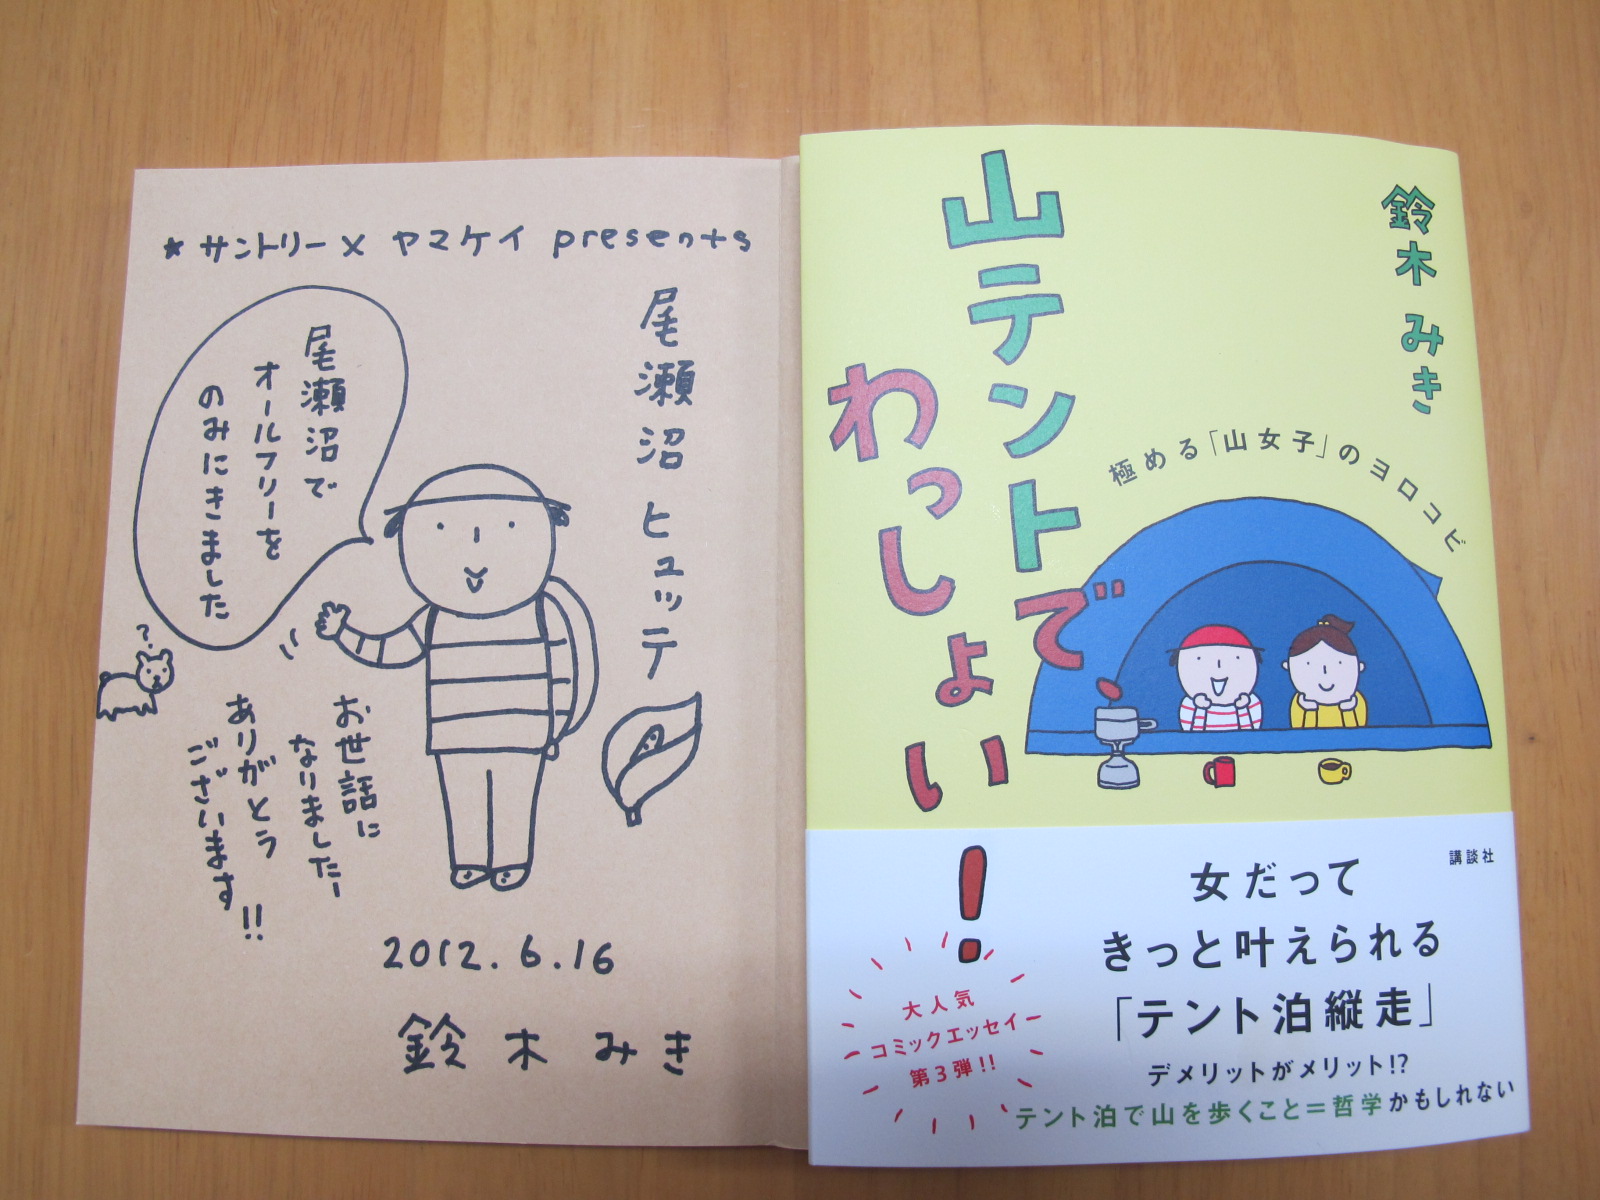 ★サントリー×ヤマケイ presents
尾瀬沼ヒュッテ
尾瀬沼で
オールフリーを
のみにきました
?
お世話に
なりましたー
ありがとう
ございます!!
2012.6.16
鈴木みき
鈴木みき
山テントで、
わっしょい!
極める「山女子」のヨロコビ
講談社
女だって
きっと叶えられる
「テント泊縦走」
デメリットがメリット!?
テント泊で山を歩くこと=哲学かもしれない
大人気
コミックエッセイ
第3弾!!